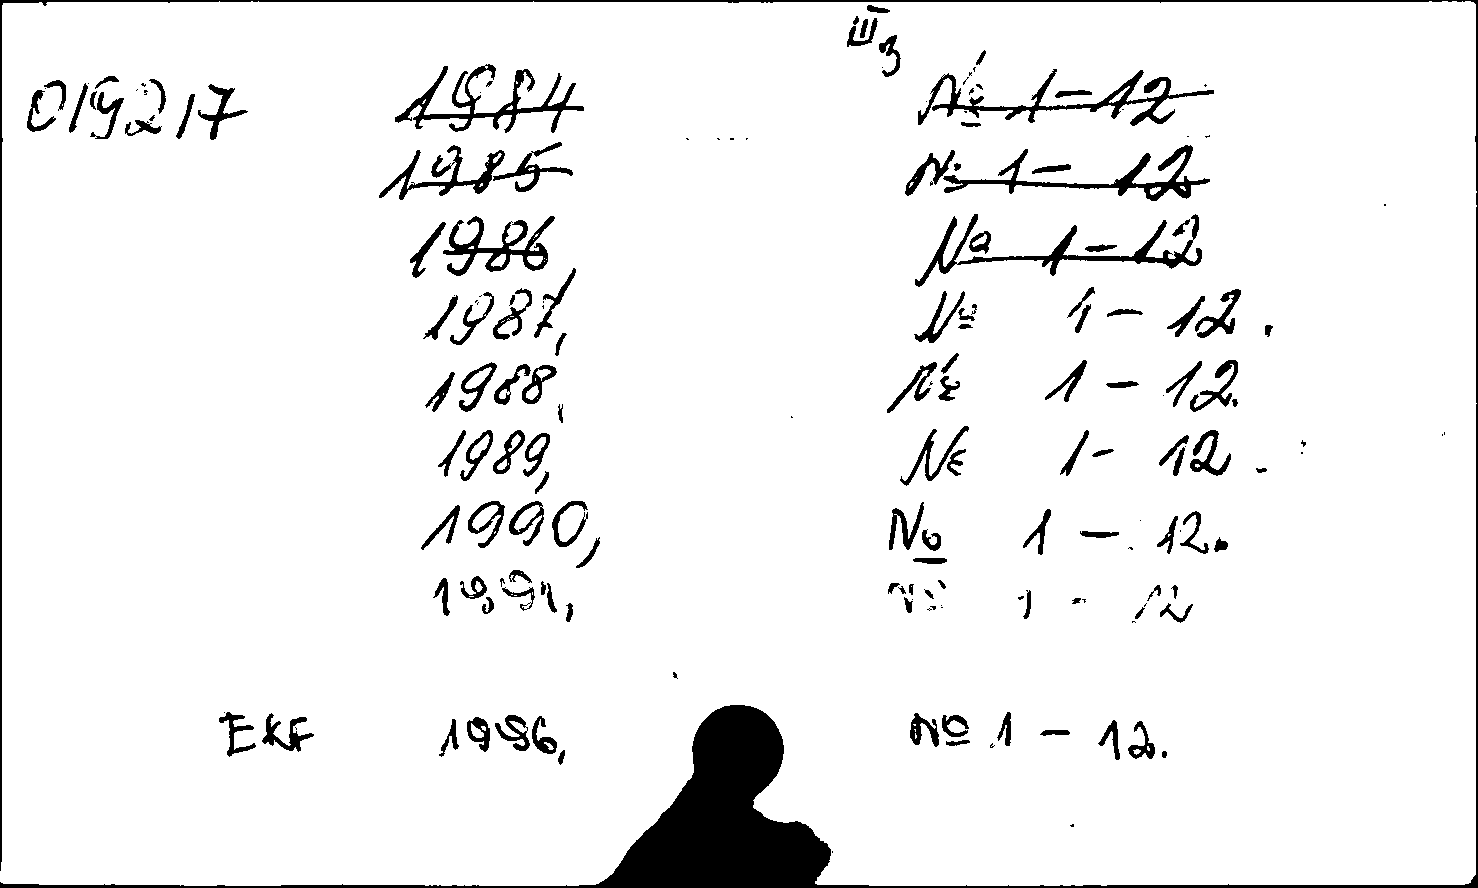 III 3
019217 1984 № 1-12
1985 № 1- 12
1986, № 1-12
1987, № 1- 12.
1988, № 1 - 12.
1989, № 1- 12.
1990, № 1 - 12.
1991, № 1 - 12
EKF 1996, № 1 - 12.